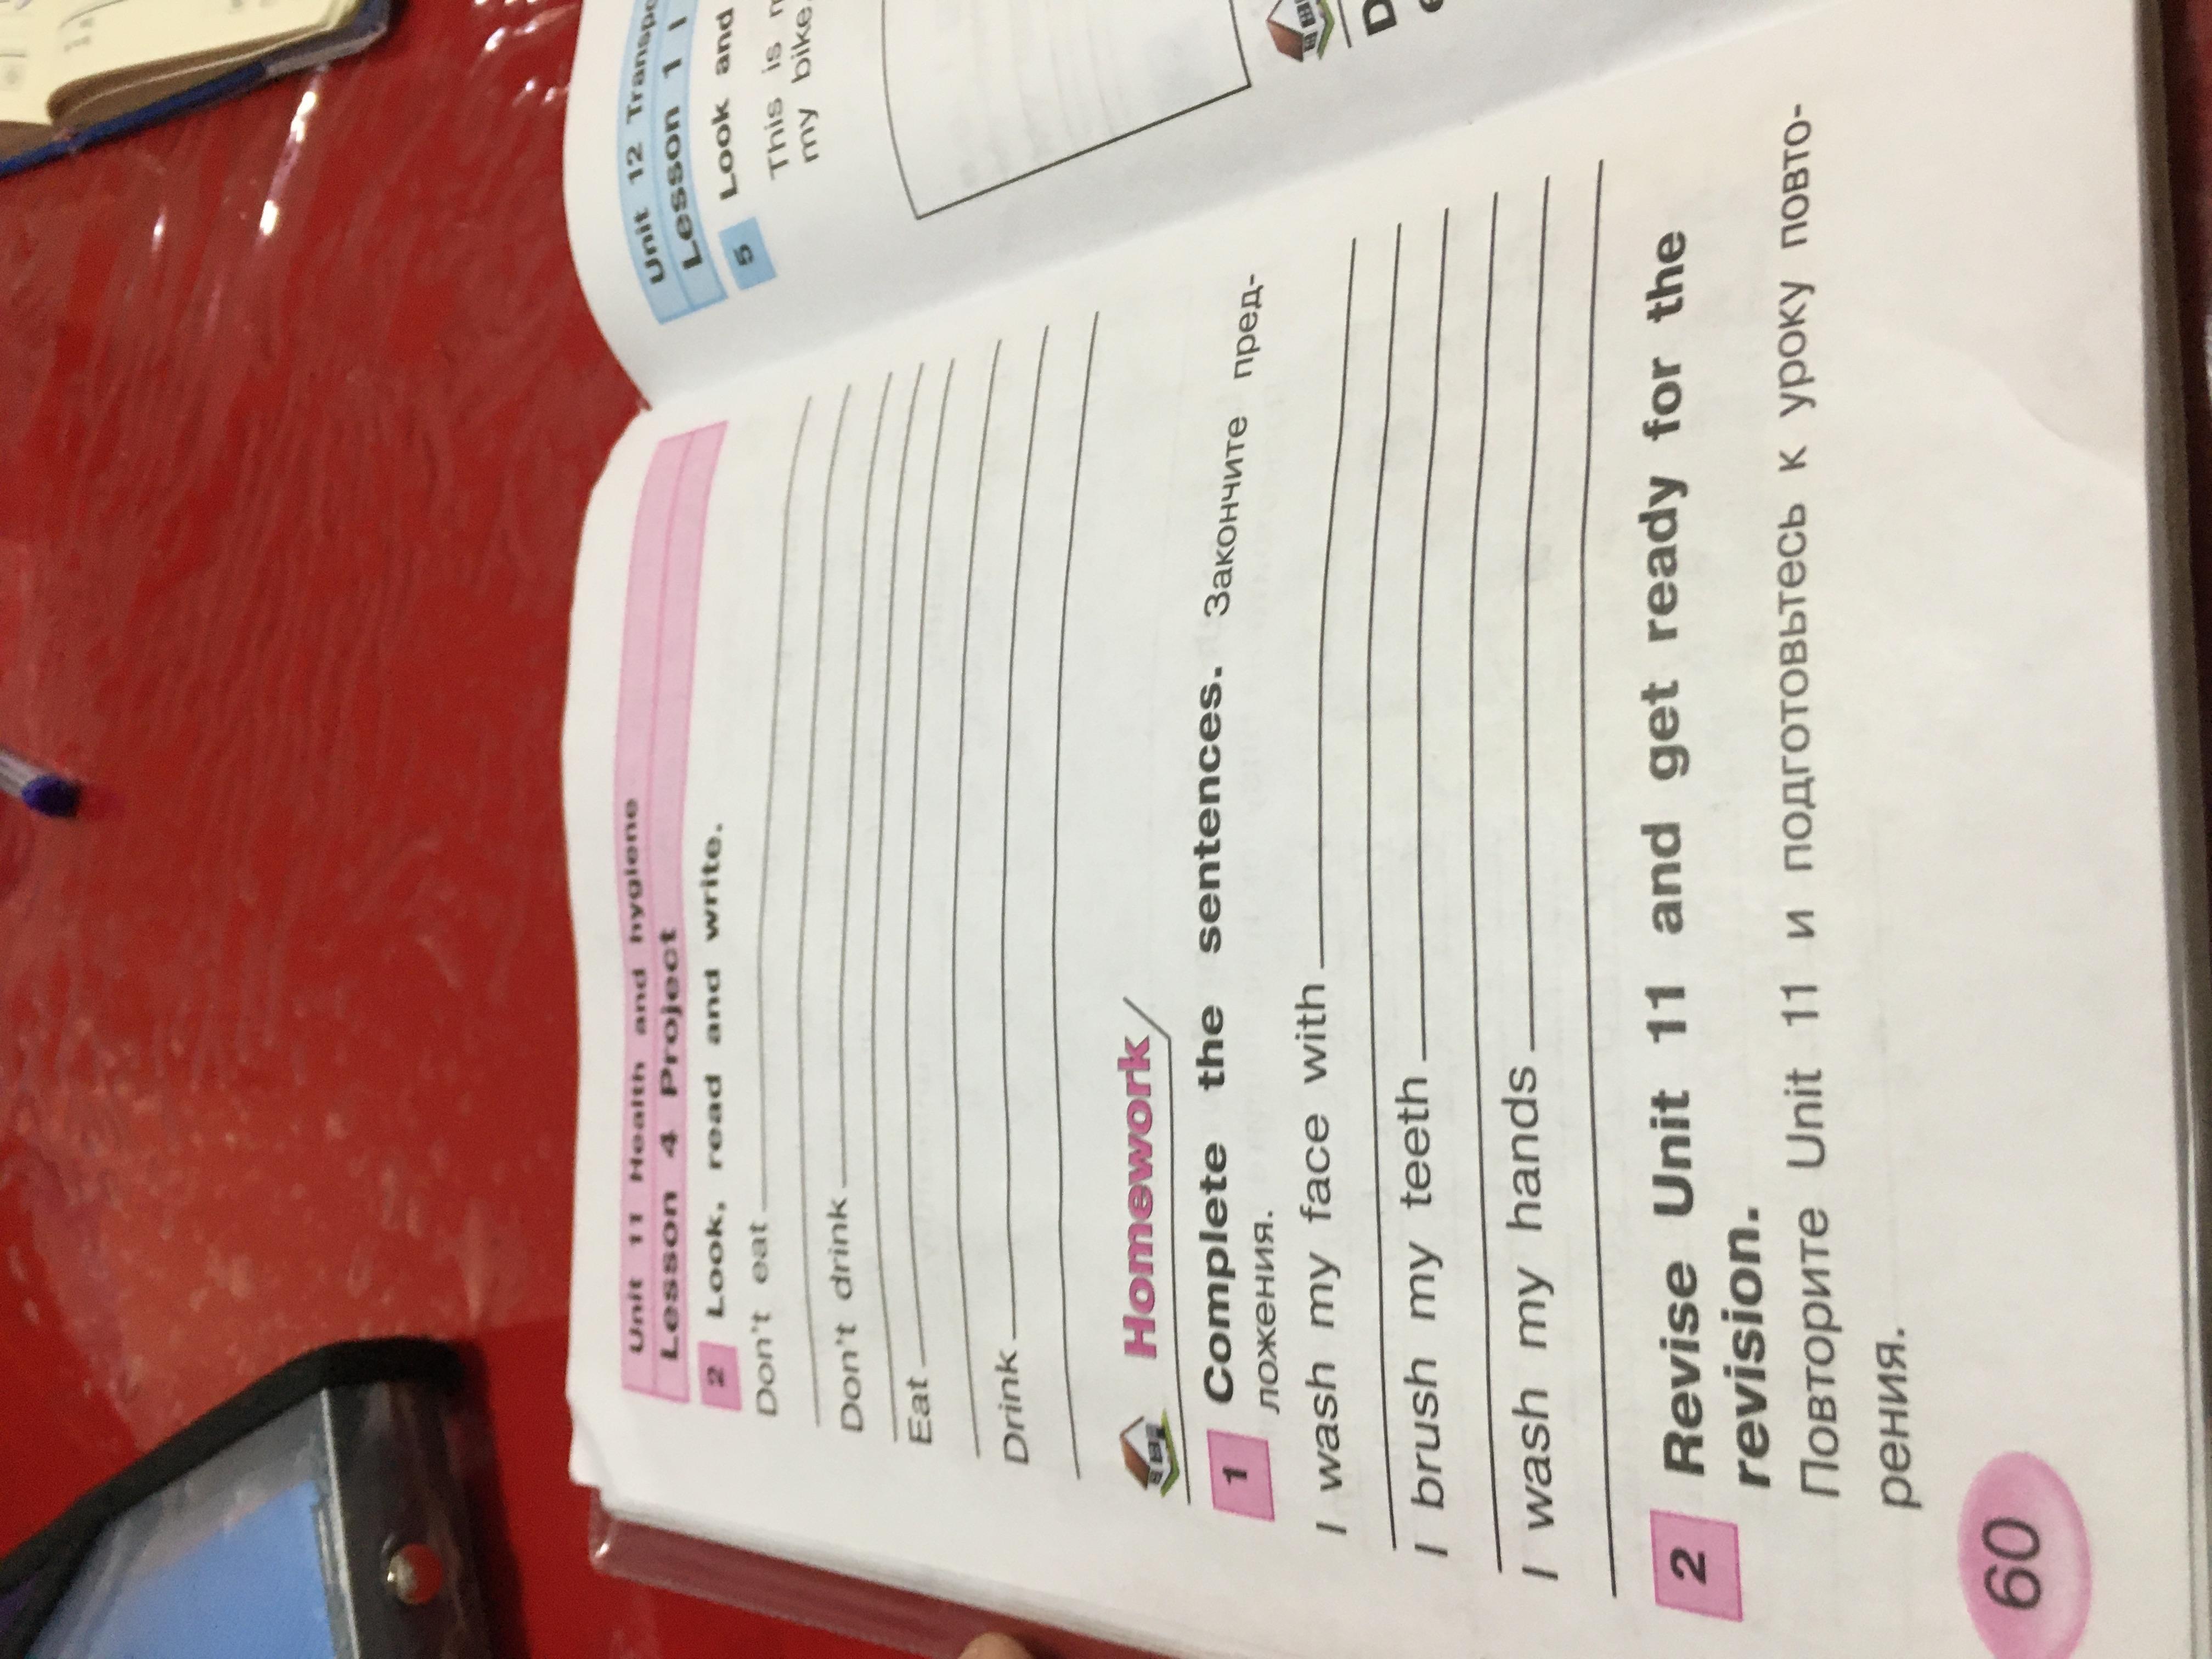 Unit 11 Health and hygiene
Lesson 4 Project
2 Look, read and write.
Don't eat
Don't drink
Eat
Drink
Homework
1 Complete the sentences. Закончите пред-
ложения.
I wash my face with
I brush my teeth
I wash my hands
2 Revise Unit 11 and get ready for the
revision.
Повторите Unit 11 и подготовьтесь к уроку повто-
рения.
60
Unit 12
Lesson 1
5 Look and
This is
my bike.